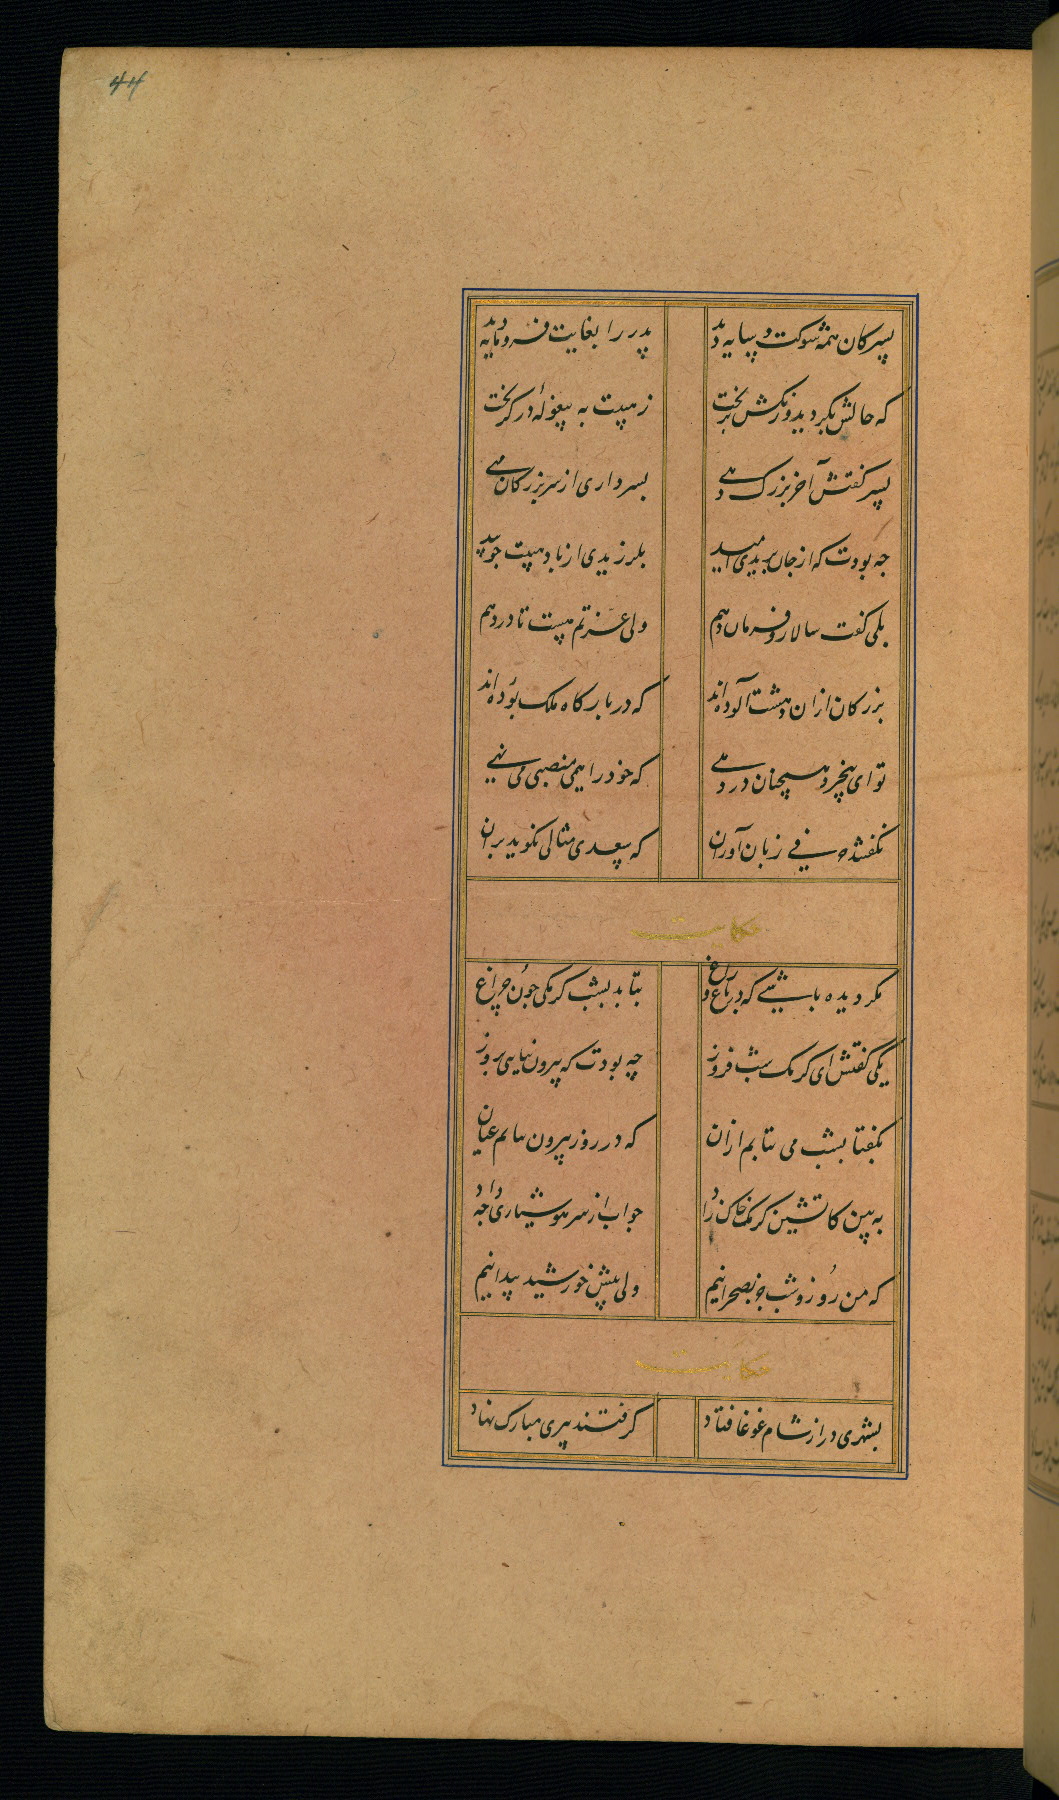 44
پسر کان همه شوکت و پایه دید پدر را بغایت فرومایه دید
که حالش بگردید و رنکش بریخت ز هیبت به پیغوله در کریخت
پسر کفتش آخر بزرک دهی بسرداری از سر بزرکان مهی
چه بودت که از جان بریدی امید بلرزیدی از باد هیبت چو بید
بلی کفت سالار و فرمان دهم ولی عزتم هست تا در دهم
بزرکان ازان دهشت آلوده اند که در بارکاه ملک بوده اند
تو ای بیخبر همچنان در دهی که خود را همی منصبی می نهی
نکفتند حرفی زبان آوران که سعدی مثالی نکوید بران
حکایت
مکر دیده باشی که در باغ و راغ بتابد بشب کرمکی چون چراغ
یکی کفتش ای کرمک شب فروز چه بودت که بیرون نیایی بروز
بکفتا بشب می بتابم ازان که در روز بیرون نیایم عیان
به بین کاتشین کرمک خاک زاد جواب از سر هوشیاری چه داد
که من روز و شب جز بصحرا نیم ولی پیش خورشید پیدا نیم
حکایت
بشهری در از شام غوغا فتاد کرفتند پیری مبارک نهاد